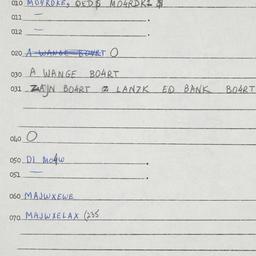 010 MO4RDKE, DED$ MO4RDK1 $
011 —
012 —
020 A WANGE BOART O
030 A WANGE BOART
031 ZAJN BOART Z LANZK ED BANK BOART
040 O
050 DI MO4W
051
060 MAJWXEWE
070 MAJWXELAX (235